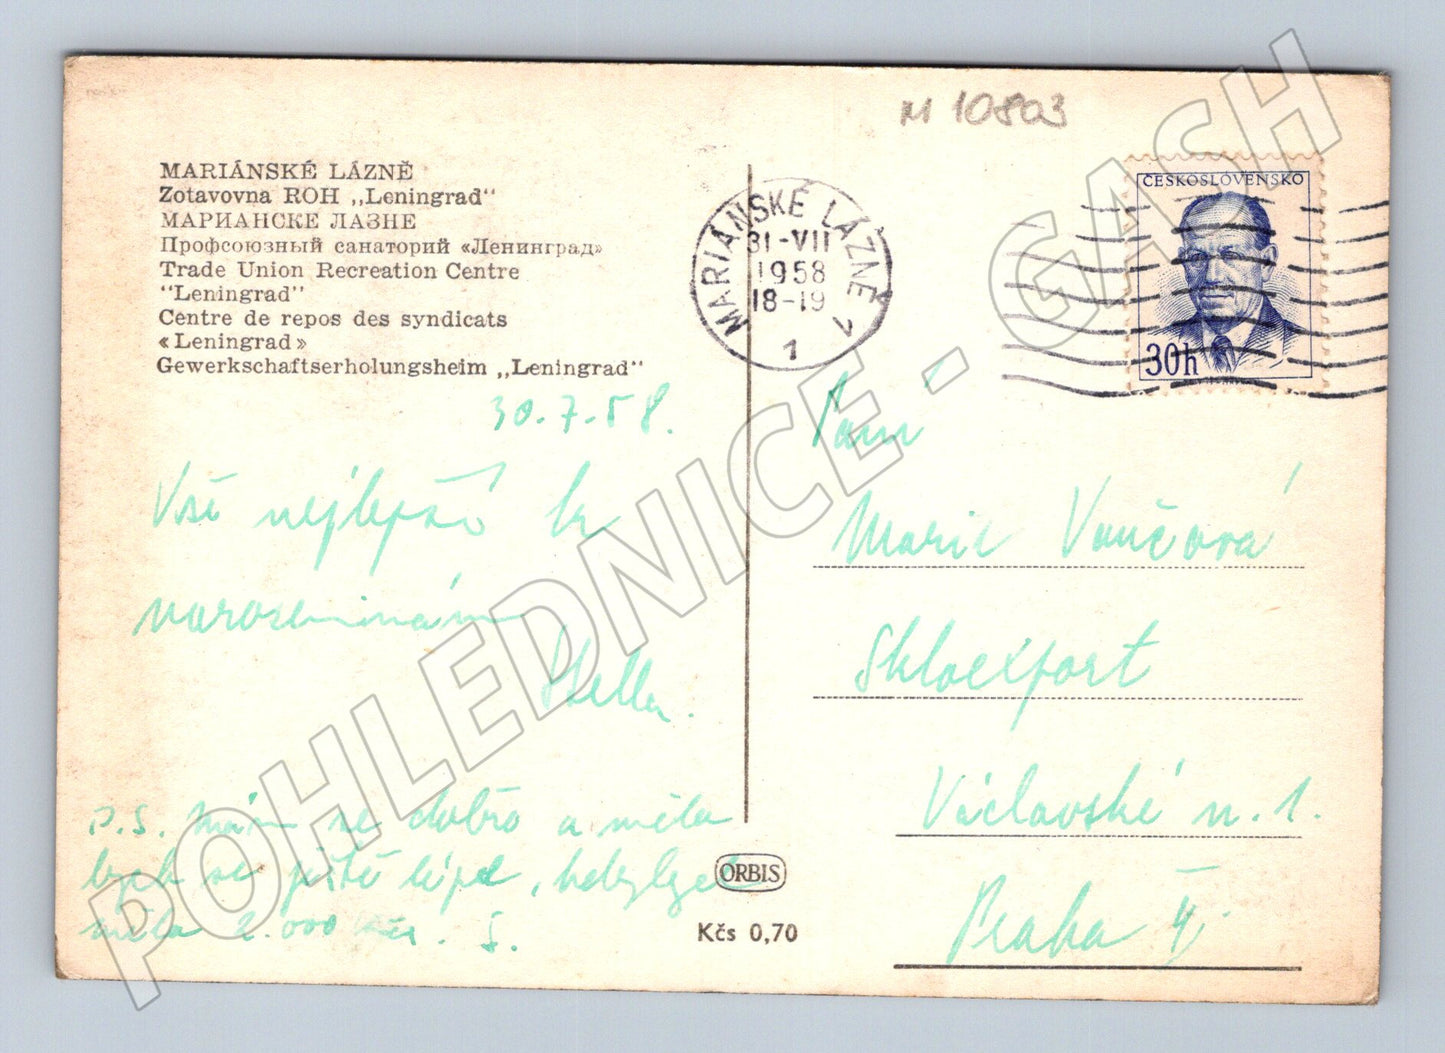 M 10803
MARIÁNSKÉ LÁZNĚ
Zotavovna ROH „Leningrad"
МАРИАНСКЕ ЛАЗНЕ
Профсоюзный санаторий «Ленинград»
Trade Union Recreation Centre
"Leningrad"
Centre de repos des syndicats
«Leningrad»
Gewerkschaftserholungsheim „Leningrad"
30.7.58.
Vše nejlepší k
narozeninám
Stella.
P.S. Mám se dobře a měla
bych se ještě lépe, kdybych
měla 2.000 Kčs. S.
MARIÁNSKÉ LÁZNĚ 1
31-VII
1958
18-19
1
ČESKOSLOVENSKO
30h
Paní
Marie Vančová
Skloexport
Václavské n. 1.
Praha II.
ORBIS
Kčs 0,70
POHLEDNICE - GASH